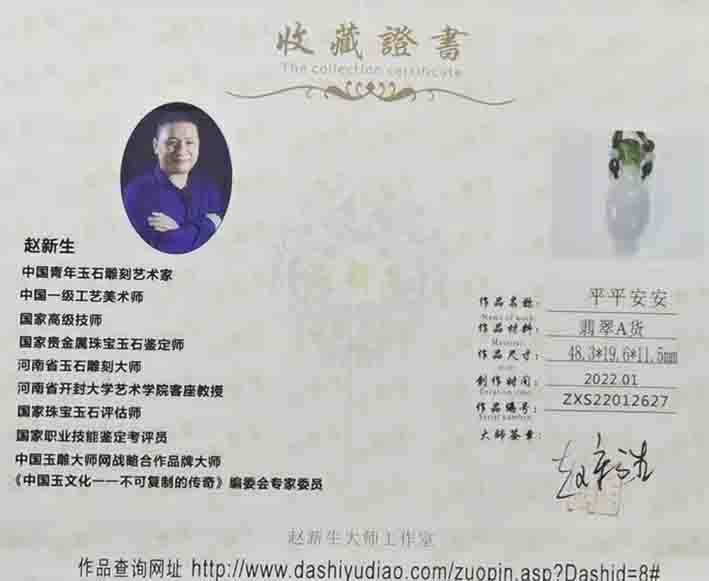 收藏證書
The collection certificate
赵新生
中国青年玉石雕刻艺术家
中国一级工艺美术师
国家高级技师
国家贵金属珠宝玉石鉴定师
河南省玉石雕刻大师
河南省开封大学艺术学院客座教授
国家珠宝玉石评估师
国家职业技能鉴定考评员
中国玉雕大师网战略合作品牌大师
《中国玉文化一一不可复制的传奇》编委会专家委员
作品名称: 平平安安
Name of work:
作品材料: 翡翠A货
Material:
作品尺寸: 48.3*19.6*11.5mm
创作时间: 2022.01
Creation time:
作品编号: ZXS22012627
Serial number:
大师签章:
赵新生
赵新生大师工作室
作品查询网址 http://www.dashiyudiao.com/zuopin.asp?Dashid=8#